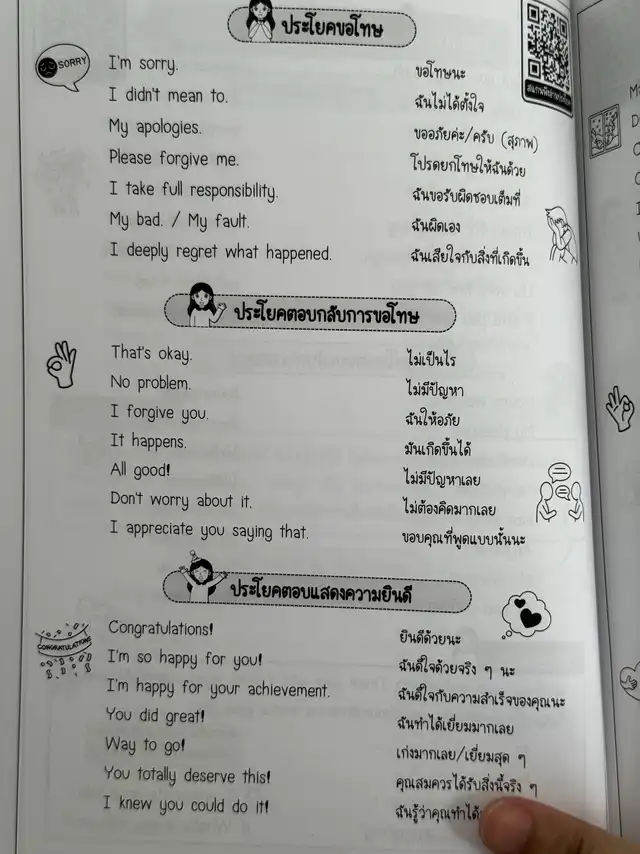 ประโยคขอโทษ
SORRY
I'm sorry. ขอโทษนะ
I didn't mean to. ฉันไม่ได้ตั้งใจ
My apologies. ขออภัยค่ะ/ครับ (สุภาพ)
Please forgive me. โปรดยกโทษให้ฉันด้วย
I take full responsibility. ฉันขอรับผิดชอบเต็มที่
My bad. / My fault. ฉันผิดเอง
I deeply regret what happened. ฉันเสียใจกับสิ่งที่เกิดขึ้น
ประโยคตอบกลับการขอโทษ
That's okay. ไม่เป็นไร
No problem. ไม่มีปัญหา
I forgive you. ฉันให้อภัย
It happens. มันเกิดขึ้นได้
All good! ไม่มีปัญหาเลย
Don't worry about it. ไม่ต้องคิดมากเลย
I appreciate you saying that. ขอบคุณที่พูดแบบนั้นนะ
ประโยคตอบแสดงความยินดี
CONGRATULATIONS
Congratulations! ยินดีด้วยนะ
I'm so happy for you! ฉันดีใจด้วยจริง ๆ นะ
I'm happy for your achievement. ฉันดีใจกับความสำเร็จของคุณนะ
You did great! ฉันทำได้เยี่ยมมากเลย
Way to go! เก่งมากเลย/เยี่ยมสุด ๆ
You totally deserve this! คุณสมควรได้รับสิ่งนี้จริง ๆ
I knew you could do it! ฉันรู้ว่าคุณทำได้